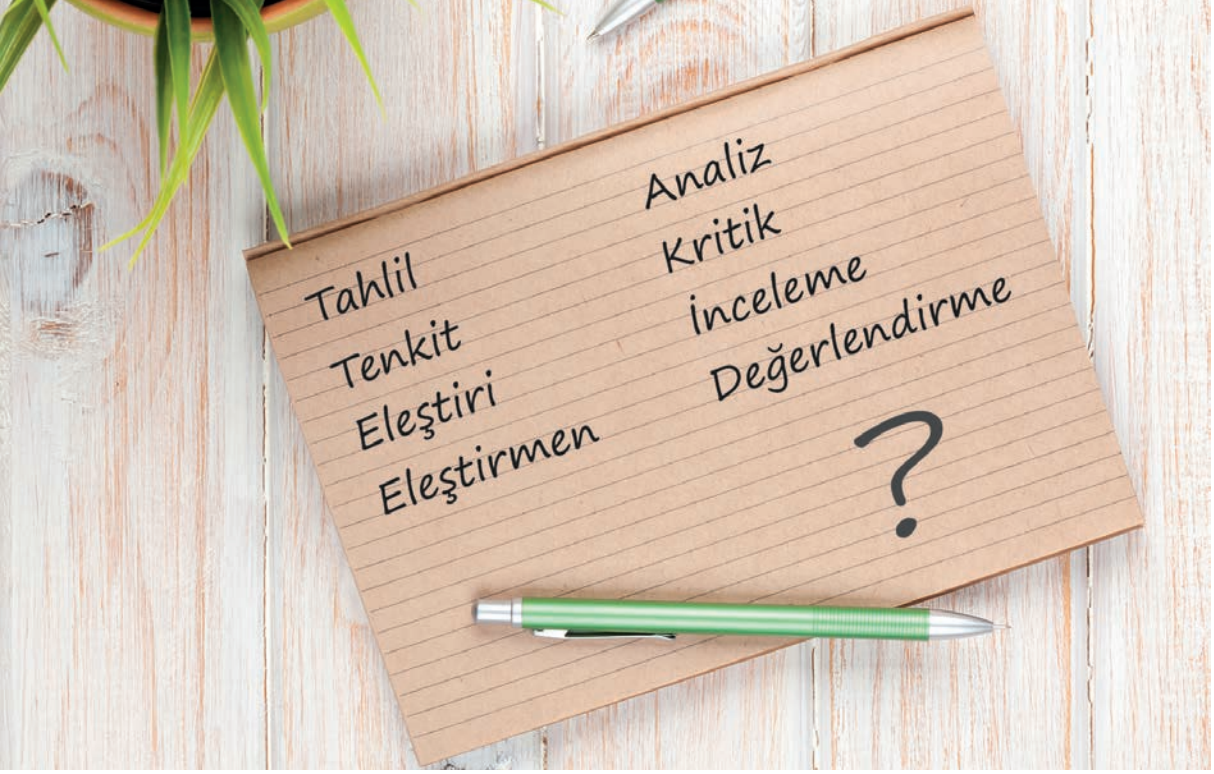 Tahlil
Tenkit
Eleştiri
Eleştirmen
Analiz
Kritik
İnceleme
Değerlendirme
?